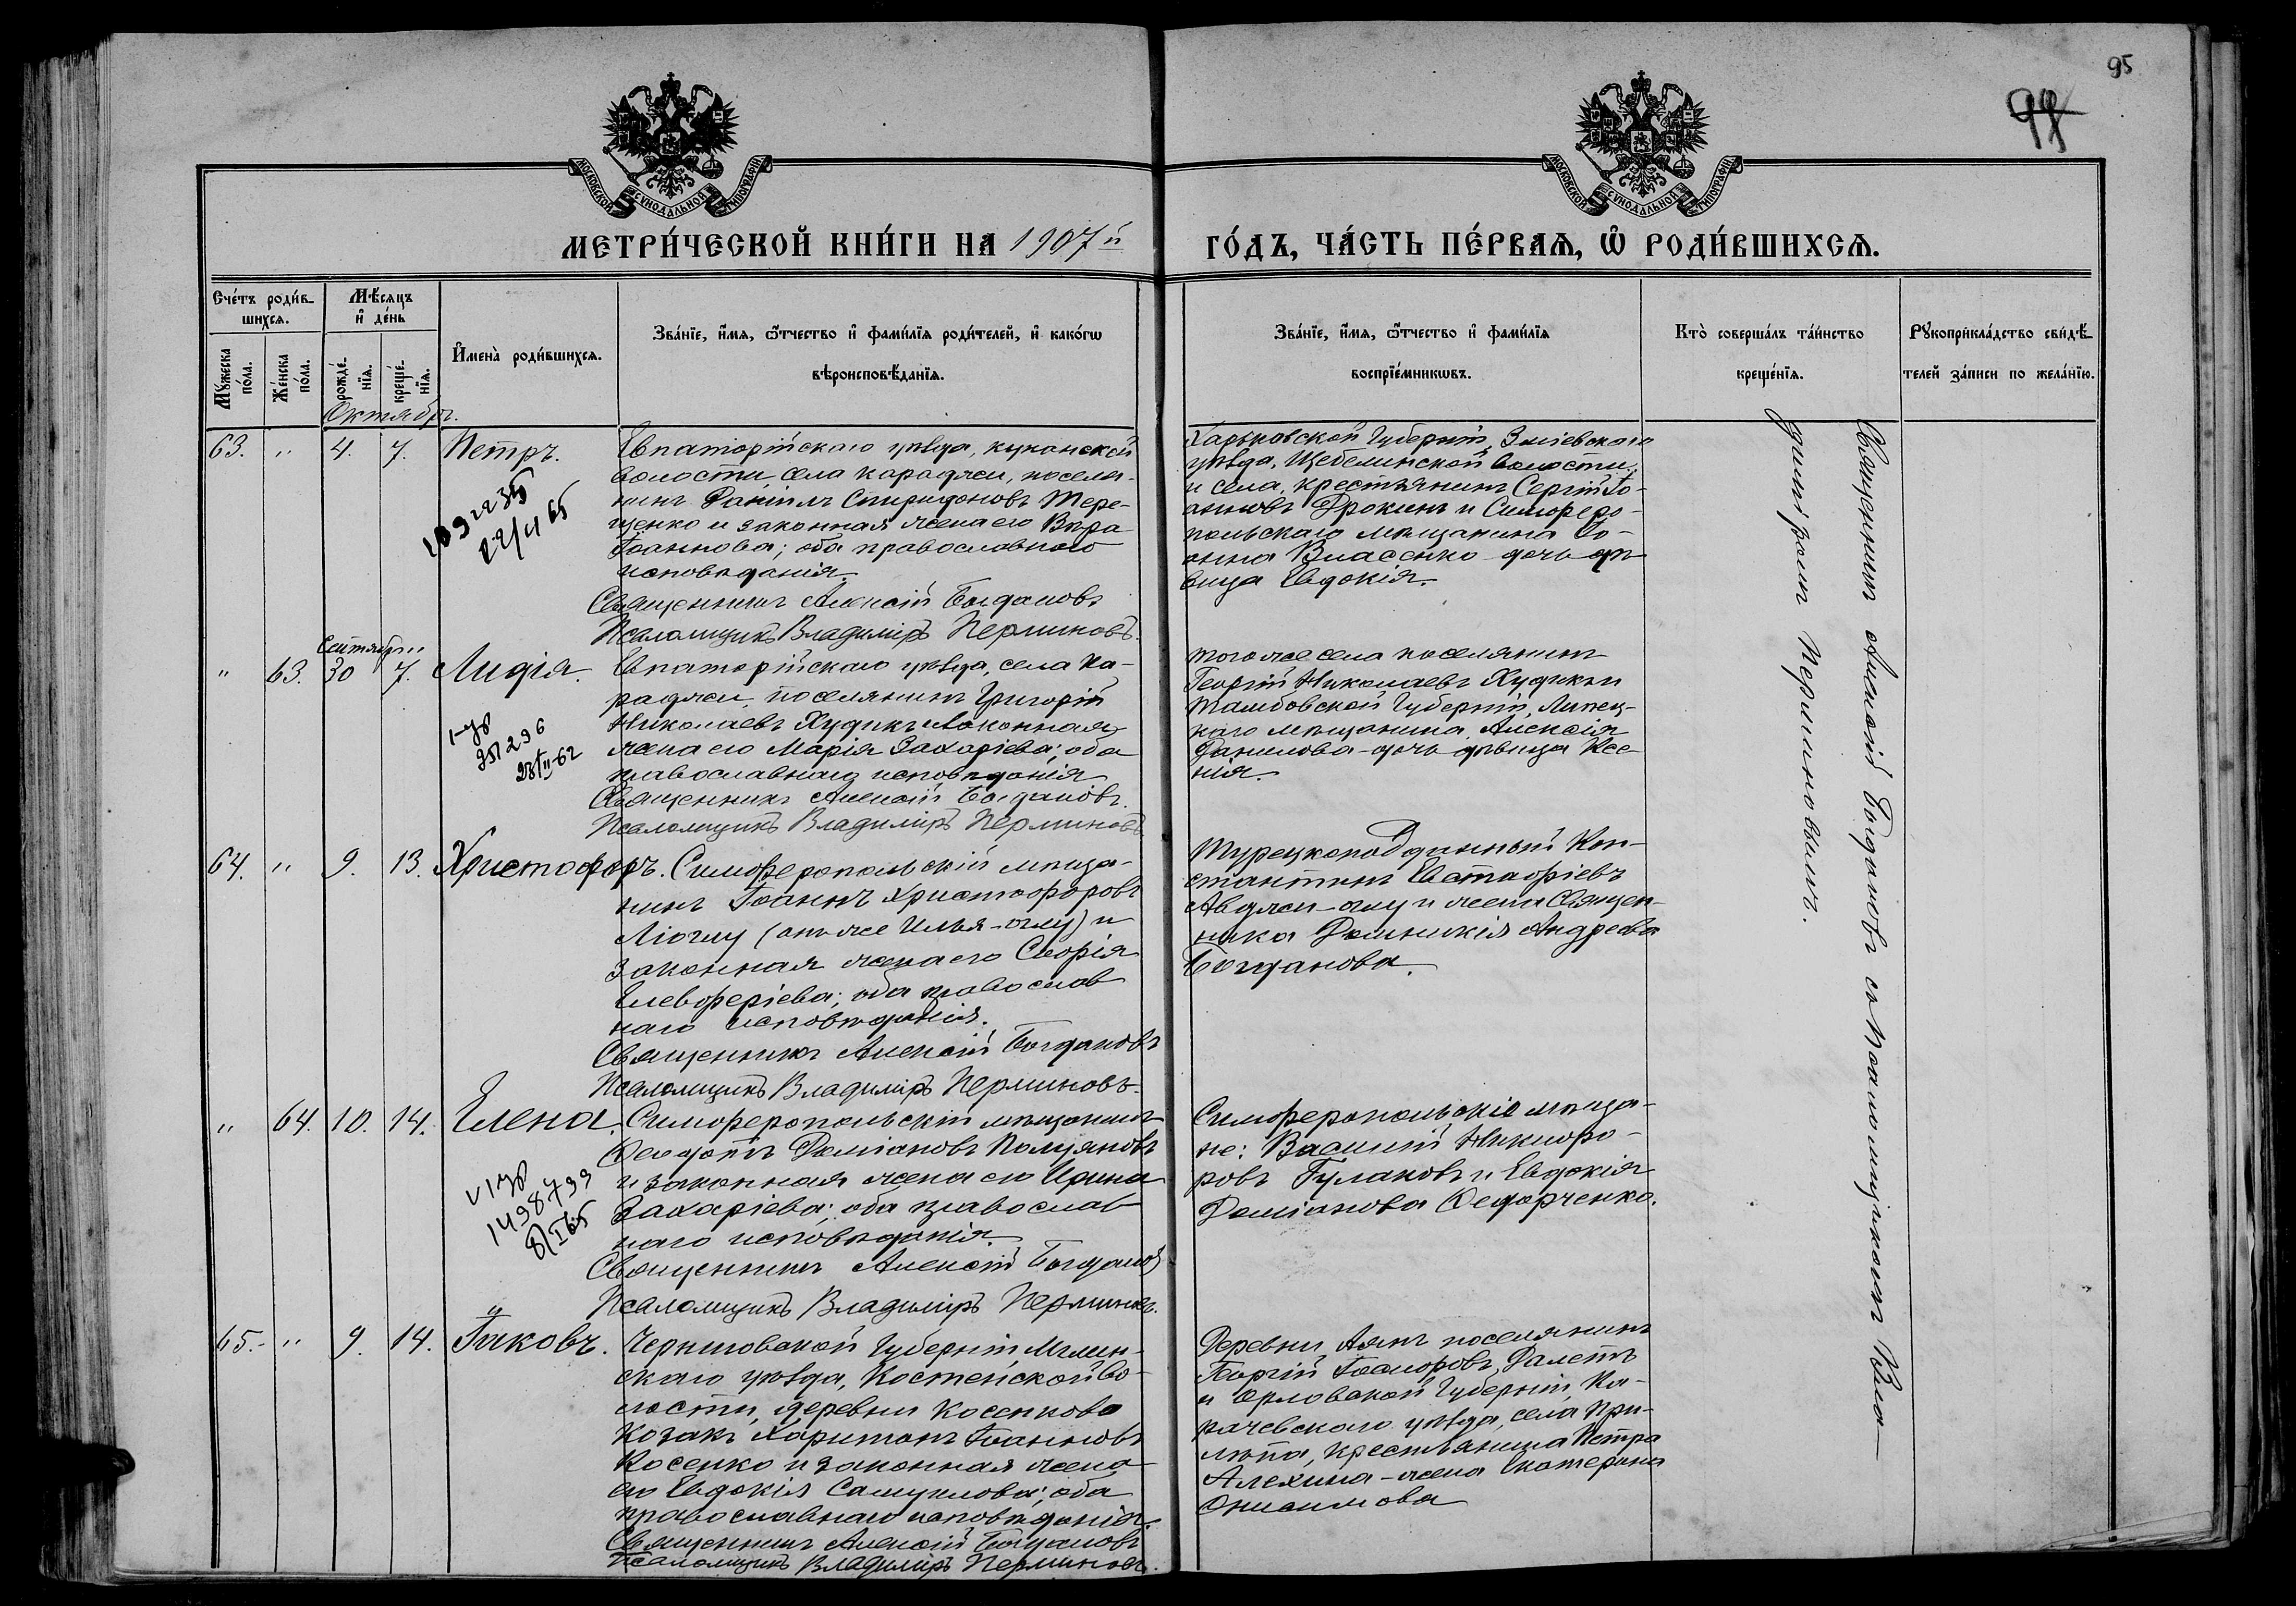 95
МОСКОВСКОЙ СУНОДАЛЬНОЙ ТИПОГРАФІИ
МОСКОВСКОЙ СУНОДАЛЬНОЙ ТИПОГРАФІИ
МЕТРИ́ЧЕСКОЙ КНИ́ГИ НА 1907й
ГО́ДЪ, ЧА́СТЬ ПЕ́РВАѦ, Ѡ РОДИ́ВШИХСѦ.
Сче́тъ роди́в-
шихсѧ.
Мѣ́сѧцъ
и҆ де́нь
Мꙋ́жеска
по́ла.
Же́нска
по́ла.
рожде́-
нїѧ.
креще́-
нїѧ.
И҆мена̀ роди́вшихсѧ.
Зва́нїе, и҆́мѧ, ѻ҆́тчество и҆ фами́лїѧ роди́телей, и҆ како́гѡ
вѣроисповѣ́данїѧ.
Зва́нїе, и҆́мѧ, ѻ҆́тчество и҆ фами́лїѧ
воспрїе́мникѡвъ.
Кто̀ соверша́лъ та́инство
креще́нїѧ.
Рꙋкоприкла́дство свидѣ́-
телей за́писи по жела́нїю.
Октябрь.
63. " 4. 7. Петръ.
Евпаторійскаго уѣзда, кунанской
волости, села Караджи, поселя-
нинъ Даніилъ Спиридоновъ Тере-
щенко и законная жена его Вѣра
Іоаннова; оба православнаго
исповѣданія.
Священникъ Алексій Богдановъ
Псаломщикъ Владиміръ Перминовъ.
Харьковской Губерніи, Зміевскаго
уѣзда, Щебелинской волости,
и села, крестьянинъ Сергій Іо-
анновъ Дрокинъ и Симферо-
польскаго мѣщанина Іо-
анна Власенко – дочь дѣ-
вица Евдокія.
22/ 65
Сентября
" 63. 30 7. Лидія.
Евпаторійскаго уѣзда, села Ка-
раджи, поселянинъ Григорій
Николаевъ Худикъ и законная
жена его Марія Захаріева; оба
православнаго исповѣданія
Священникъ Алексій Богдановъ.
Псаломщикъ Владиміръ Перминовъ
того же села поселянинъ
Георгій Николаевъ Худикъ и
Тамбовской Губерніи, Липец-
каго мѣщанина Алексія
Данилова – дочь дѣвица Ксе-
нія.
351296
28/II-62
64. " 9. 13. Христофоръ.
Симферопольскій мѣща-
нинъ Іоаннъ Христофоровъ
(онъ же Илья-оглу) и
законная жена его Софія
Елевферіева; оба православ
наго исповѣданія.
Священникъ Алексій Богдановъ
Псаломщикъ Владиміръ Перминовъ.
Турецкоподданный Кон-
стантинъ Евстафіевъ
Авджи-оглу и жена священ-
ника Домникія Андреева
Богданова.
" 64. 10. 14. Елена.
Симферопольскій мѣщанинъ
Ѳеодотъ Даміановъ Полуяновъ
и законная жена его Ирина
Захаріева; оба православ
наго исповѣданія.
Священникъ Алексій Богдановъ
Псаломщикъ Владиміръ Перминовъ.
Симферопольскіе мѣща-
не: Василій Никифо-
ровъ Гулаковъ и Евдокія
Даміанова Ѳедорченко.
1498799
8/I65
65. " 9. 14. Іаковъ.
Черниговской Губерніи, Мглин-
скаго уѣзда, Костенской во-
лости, деревни Косенково
козакъ Харитонъ Іоанновъ
Косенко и законная жена
его Евдокія Самуилова; оба
православнаго исповѣданія.
Священникъ Алексій Богдановъ
Псаломщикъ Владиміръ Перминовъ.
Деревни Аянъ поселянинъ
Георгій Іосифовъ Далетъ
и Орловской Губерніи, Ка-
рачевскаго уѣзда, села При-
лѣпа, крестьянина Петра
Алехина – жена Екатерина
Онисимова
Священникъ Алексій Богдановъ съ псаломщикомъ Вла-
диміромъ Перминовымъ.